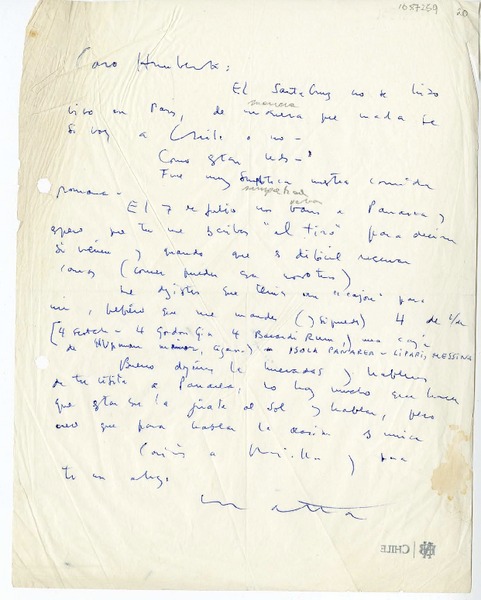 1057259
Caro Humberto:
El Santa Cruz no se hizo
vivo en Paris, de manera que nada se
manera
si voy a Chile o no-
Como estan Uds-?
Fue muy simpática nuestra comida
simpática
romana-
El 7 de Julio nos vamos a Panarea y
espero que tu me escribas "al tiro" para decirme
si vienen y quando que es dificil reservar
camas (comer pueden con nosotros)
Me dijistes que tenias un "cajon" para
mi, que me mande (y siguedo) 4 de c/u
[4 Scotch - 4 Gordon Gin 4 Bacardi Rum,) una caja
de a ISOLA PANAREA - LIPARI, MESSINA
Bueno dejame le y hablemos
de tu visita a Panarea, no hay mucho que hacer
que estar de la al sol y hablar, pero
creo que para hablar la ocasion es unica
Cariños a y para
ti un abrazo
Matta
CHILE